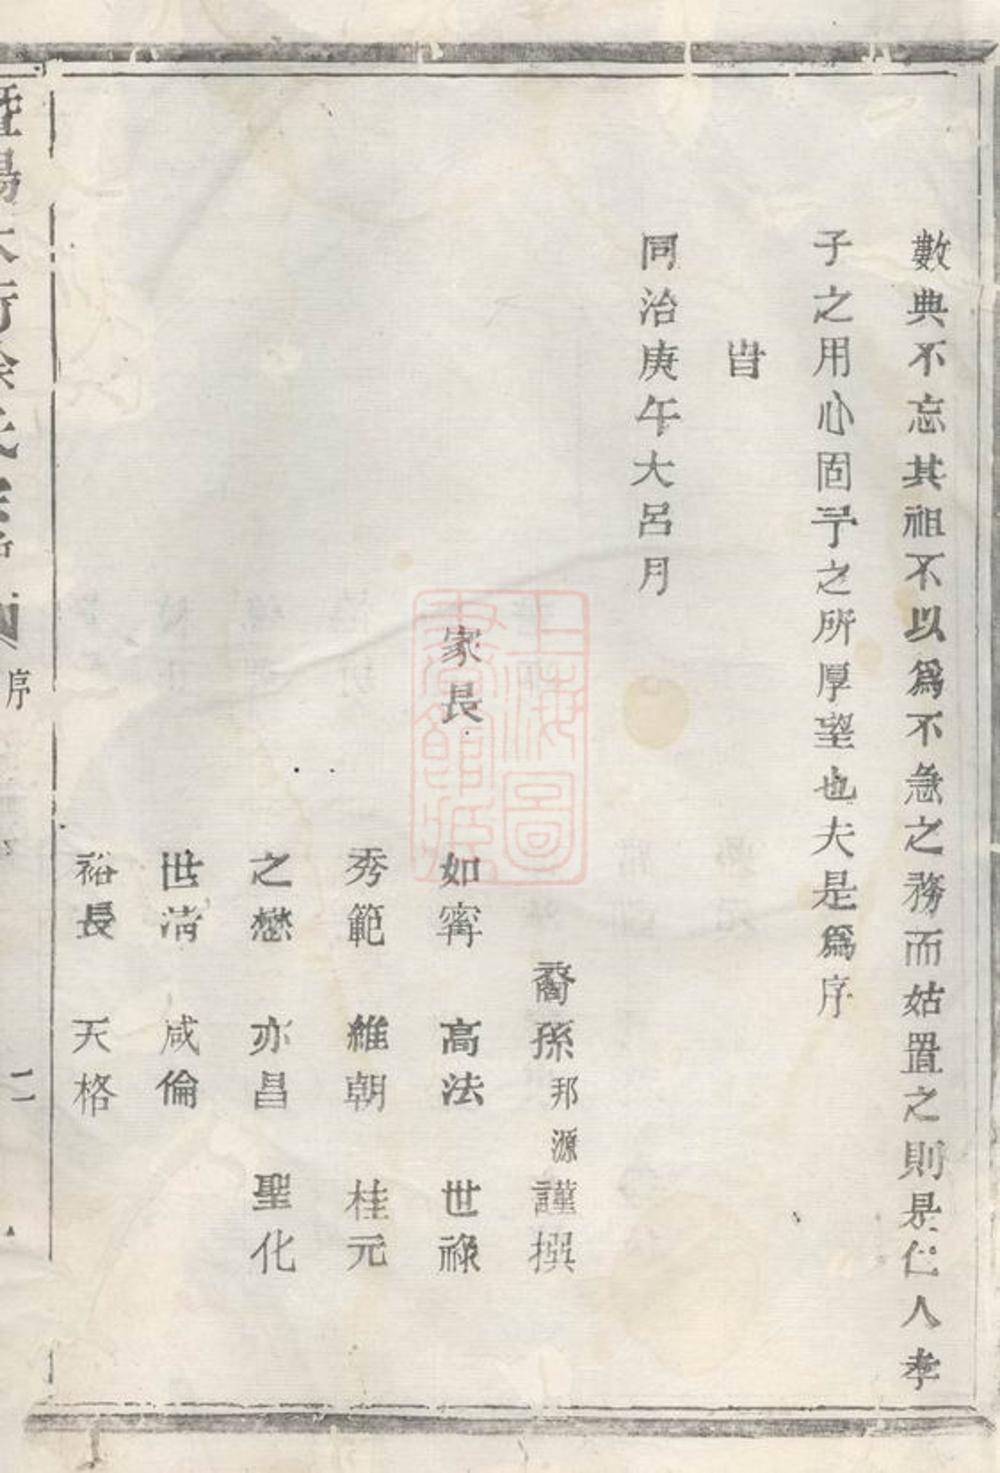 數典不忘其祖不以爲不急之務而姑置之則是仁人孝
子之用心固予之所厚望也夫是爲序
旹
同治庚午大呂月
裔孫邦源謹撰
家長 如寗 高法 世祿
秀範 維朝 桂元
之懋 亦昌 聖化
世淸 咸倫
裕長 天格
暨陽大街徐氏宗譜 序 二
上海圖書館藏